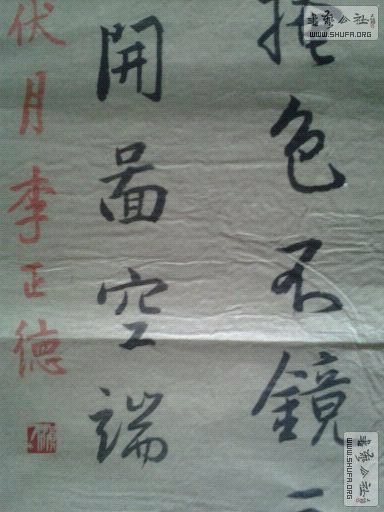 色不鏡
開啚空端
伏月李正德
书艺公社
WWW.SHUFA.ORG
书艺公社
WWW.SHUFA.ORG